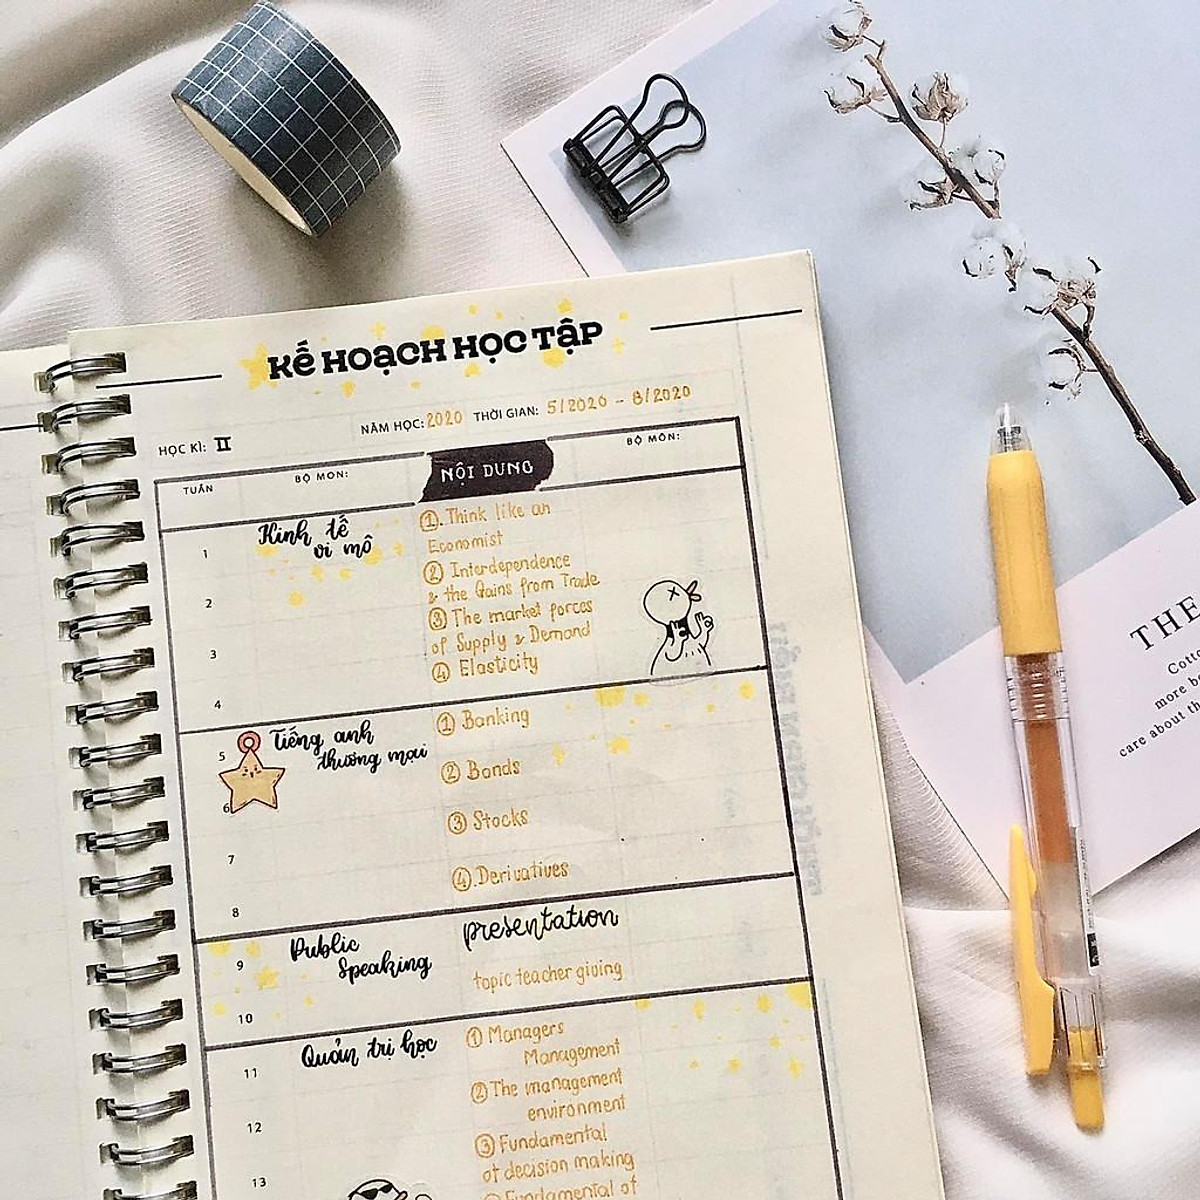 KẾ HOẠCH HỌC TẬP
HỌC KÌ: II
NĂM HỌC: 2020 THỜI GIAN: 5/2020 - 8/2020
TUẦN
BỘ MÔN:
NỘI DUNG
BỘ MÔN:
1
2
3
4
Kinh tế
vi mô
①. Think like an
Economist
② Interdependence
& the Gains from Trade
③ The market forces
of Supply & Demand
④ Elasticity
5
6
7
8
Tiếng anh
thương mại
① Banking
② Bonds
③ Stocks
④. Derivatives
9
10
Public
Speaking
presentation
topic teacher giving
11
12
13
Quản trị học
① Managers
Management
② The management
environment
③ Fundamental
of decision making
Fundamental of
THE
Cotto
more be
care about th